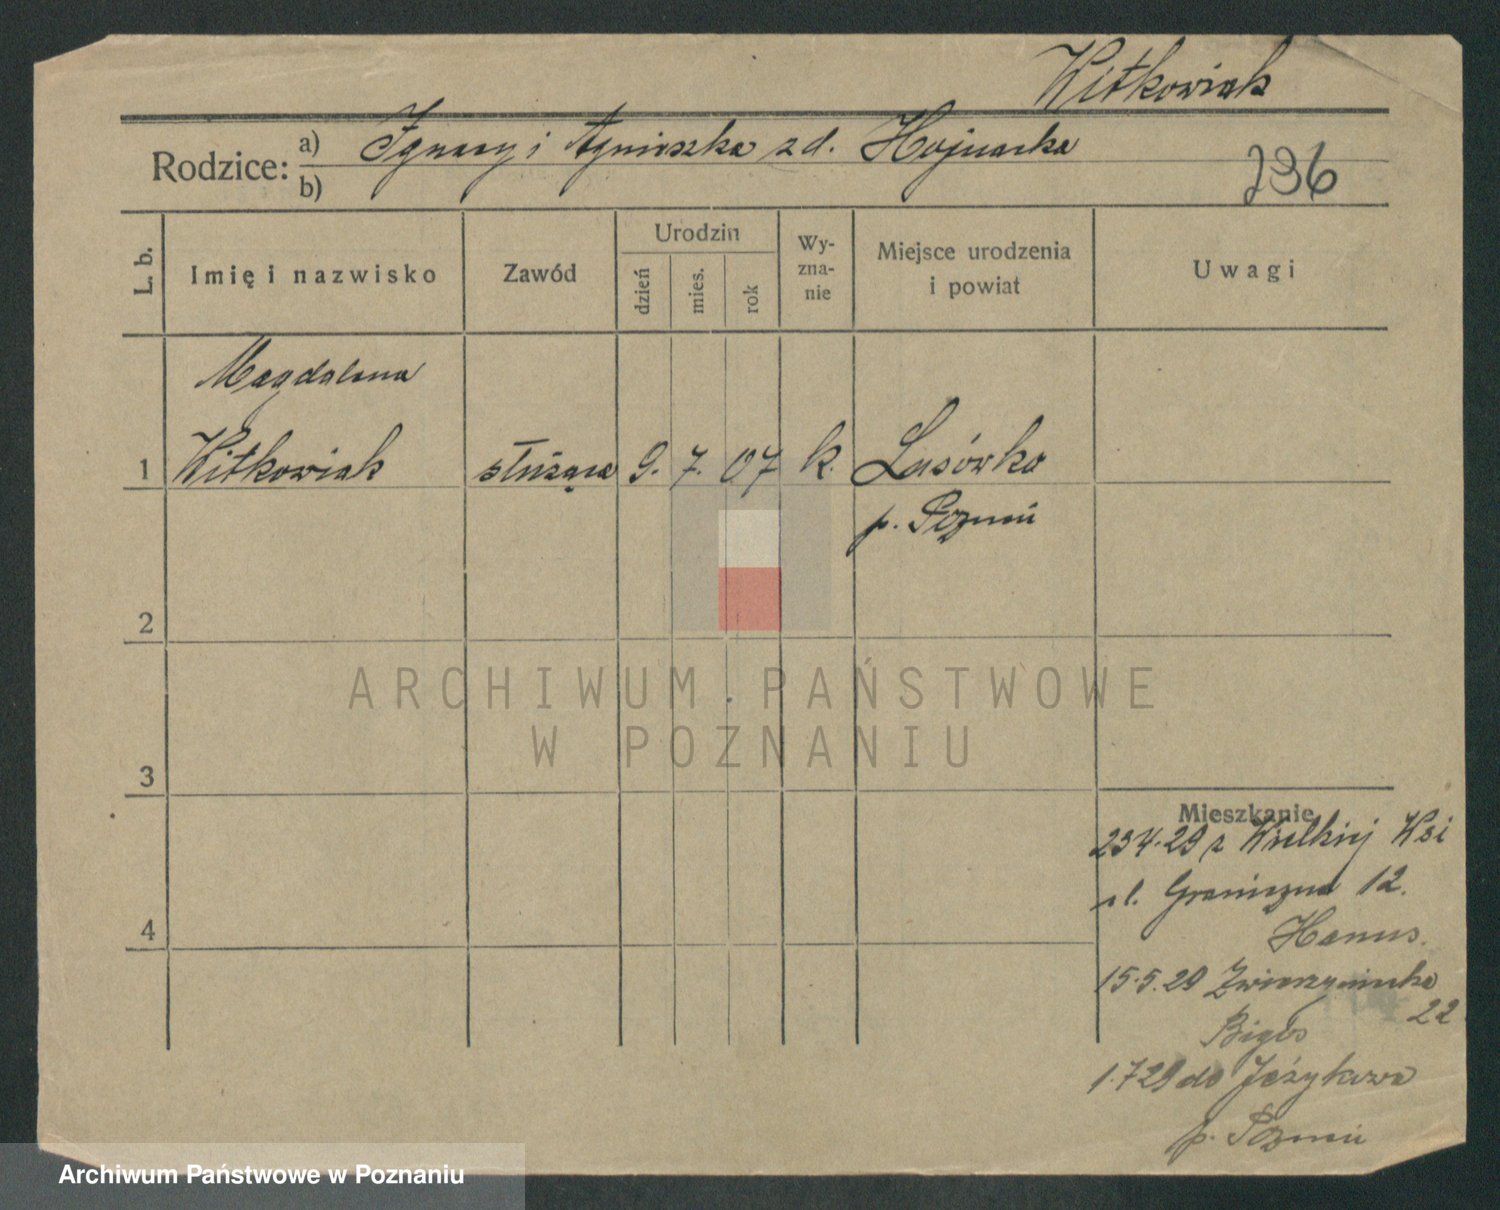 Witkowiak
Rodzice: a) Ignacy i Agnieszka z d. Hojnacka
b)
236
L. b.
Imię i nazwisko
Zawód
Urodzin
dzień
mies.
rok
Wy-
zna-
nie
Miejsce urodzenia
i powiat
Uwagi
Magdalena
1 Witkowiak służąca 9. 7. 07 k. Lusówko
p. Poznań
2
3
4
ARCHIWUM PAŃSTWOWE
W POZNANIU
Mieszkanie
23 4.29 z Wielkiej Wsi
ul. Graniczna 12.
Hanus.
15.5.29 Zwierzyniecka
22
Bigos
1.7 29 do Jeżykowa
p. Poznań
Archiwum Państwowe w Poznaniu